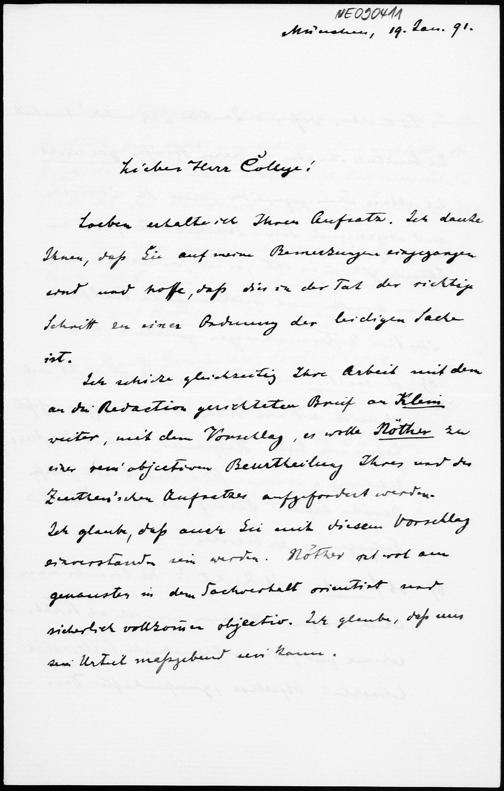 NE090411
München, 19. Jan. 91.
Lieber Herr College!
Soeben erhalte ich Ihren Aufsatz. Ich danke
Ihnen, daß Sie auf meine Bemerkungen eingegangen
sind und hoffe, daß dies in der Tat der richtige
Schritt zu einer Ordnung der leidigen Sache
ist.
Ich schicke gleichzeitig Ihre Arbeit mit dem
an die Redaction gerichteten Brief an Klein
weiter, mit dem Vorschlag, es wolle Nöther zu
einer rein objectiven Beurtheilung Ihres und des
Zeuthen'schen Aufsatzes aufgefordert werden.
Ich glaube, daß auch Sie mit diesem Vorschlag
einverstanden sein werden. Nöther ist wol am
genausten in dem Sachverhalt orientirt und
sicherlich vollkom̄en objectiv. Ich glaube, daß uns
sein Urteil maßgebend sein kann.